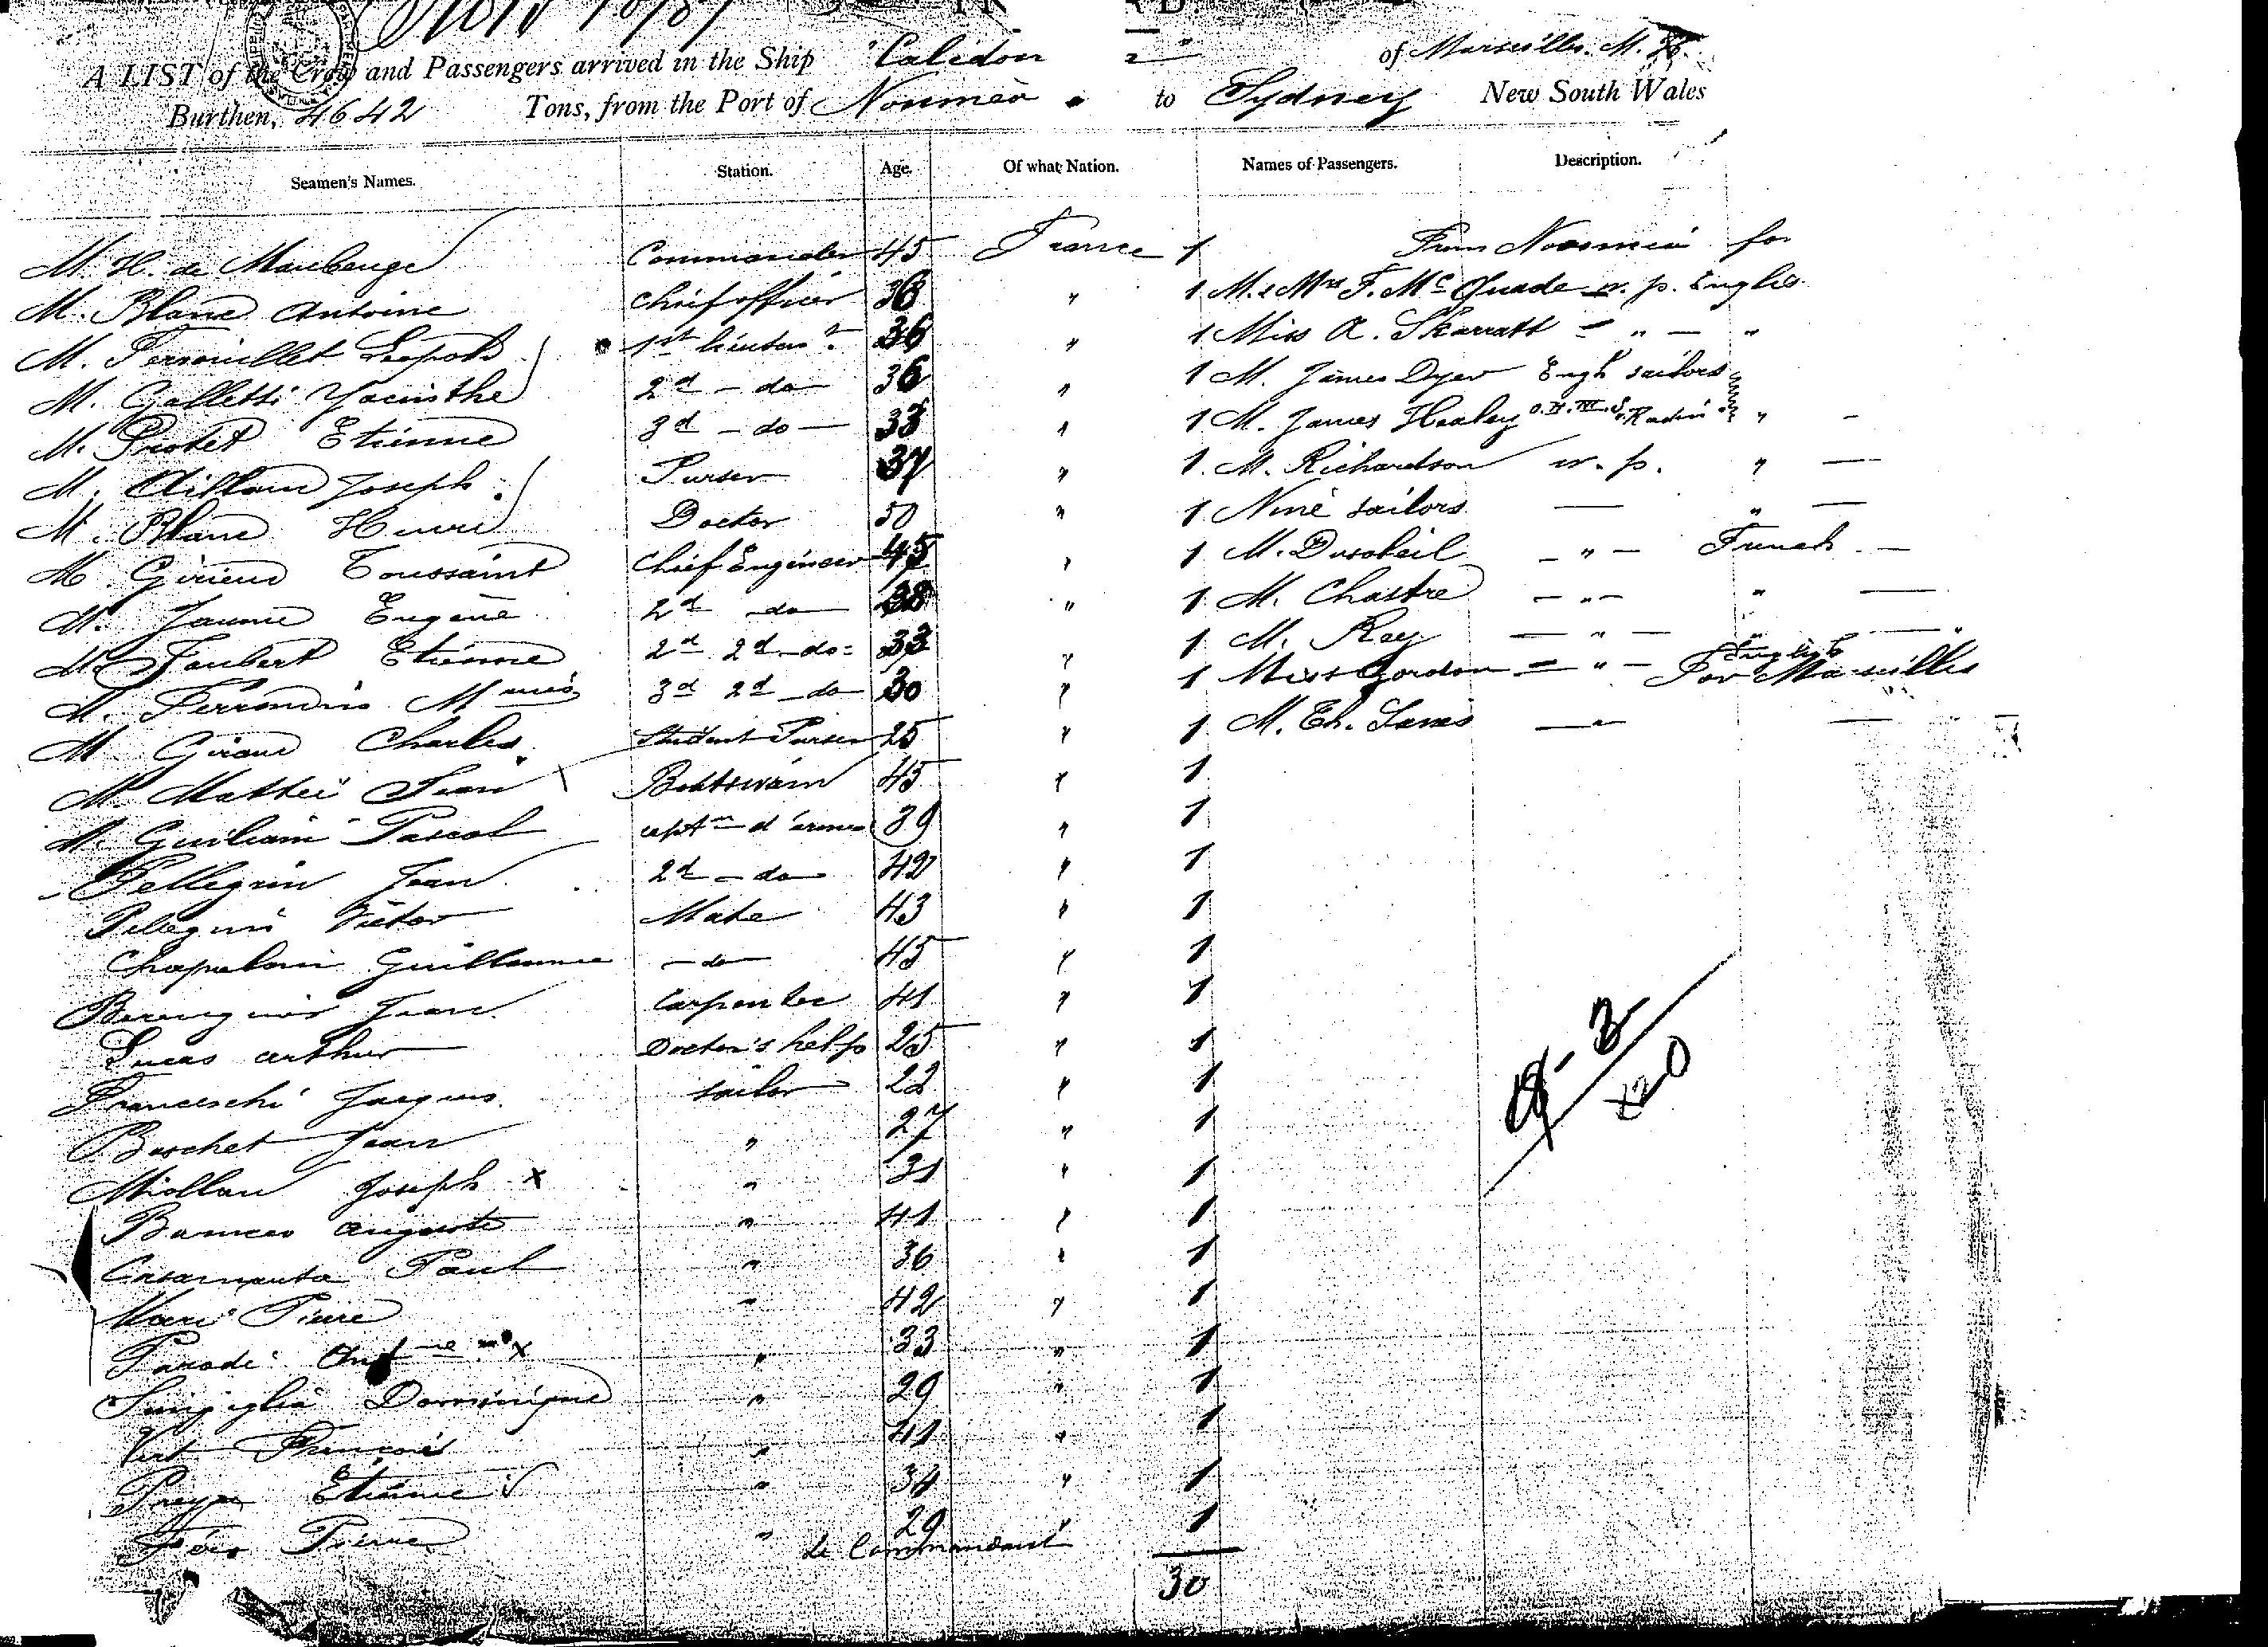 A LIST of the Crew and Passengers arrived in the Ship "Calédonn" of Marseilles. M.
Burthen, 4642 Tons, from the Port of Nouméa to Sydney New South Wales
Seamen's Names. Station. Age. Of what Nation. Names of Passengers. Description.
M. H. de Maubeuge Commander 45 France 1 From Nouméa for
M. Blanc Antoine Chief officer 38 " 1 M. & Mrs F. Mc Quade p. English
M. Ferrouillet Léopold 1st lieuten 36 " 1 Miss A. Skarratt - " - "
M. Galletti Yacinthe 2d - do - 36 " 1 M. James Dyer Engl sailors
M. Protet Etienne 3d - do - 33 " 1 M. James Healey "
M. Aillaud Joseph Purser 37 " 1 M. Richardson p. "
M. Blanc Henri Doctor 50 " 1 Nine sailors "
M. Girieud Toussaint Chief Engineer 45 " 1 M. Dusoleil - " - French
M. Jaume Eugène 2d - do - 38 " 1 M. Chastre - " - "
M. Jaubert Etienne 2d 2d - do - 33 " 1 M. Rey - " - "
M. Ferrandin 3d 2d - do 30 " 1 Miss Gordon - " - English For Marseilles
M. Giraud Charles Student Purser 25 " 1 M. Ch. - " -
M. Mattei Jean Boatswain 45 " 1
M. Guiliani Pascal capt d'armes 39 " 1
Pellegrin Jean 2d - do 42 " 1
Pellegrin Victor Mate 43 " 1
Chapelain Guillaume - do - 45 " 1
Berenguier Jean Carpenter 41 " 1
Lucas Arthur Doctor's help 25 " 1
Franceschi Jacques sailor 22 " 1
Boschet Jean " 27 " 1
Miollan Joseph x " 31 " 1
Auguste " 41 " 1
Casamanta Paul " 36 " 1
Mari Pierre " 42 " 1
Parodi x " 33 " 1
Dominique " 29 " 1
Vert François " 41 " 1
Etienne " 34 " 1
Pierre " 29 " 1
Le Commandant
30